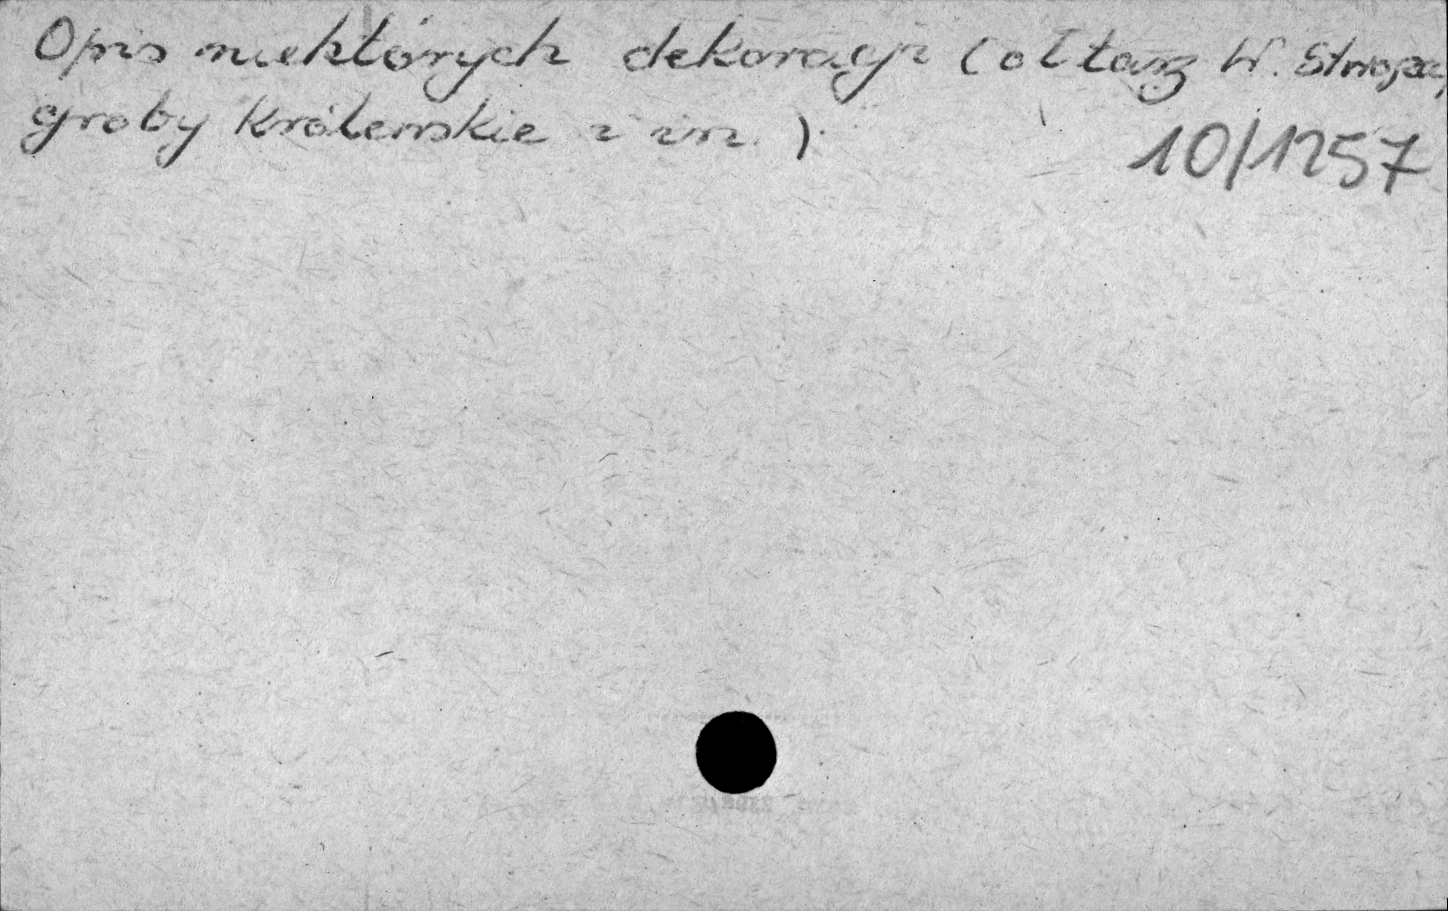 Opis niektórych dekoracji (ołtarz W. Stwosza,
groby Królewskie i in.)
10/1257